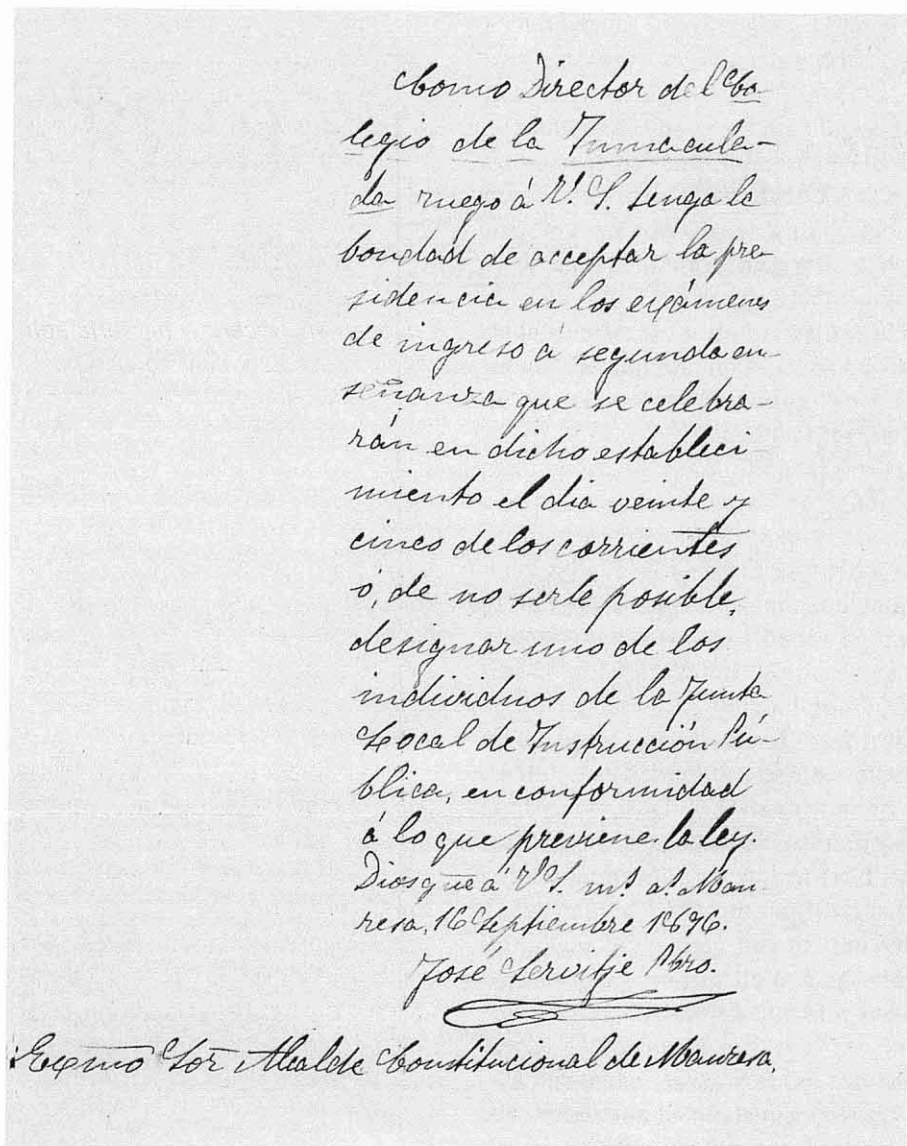 Como Director del Co-
legio de la Inmacula-
da ruego á V. S. tenga la
bondad de acceptar la pre-
sidencia en los exámenes
de ingreso á segunda en-
señanza que se celebra-
rán en dicho estableci
miento el dia veinte y
cinco de los corrientes
ó, de no serle posible,
designar uno de los
individuos de la Junta
Local de Instrucción Pú-
blica, en conformidad
á lo que previene la ley.
Dios gue á V. S. ms. as. Man
resa, 16 Septiembre 1896.
José Servitje Pbro.
Excmo Sor Alcalde Constitucional de Manresa.